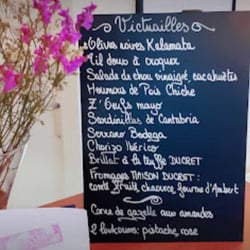 Victuailles
Olives noires Kalamata
Ail doux à croquer
Salade de chou vinaigré, cacahuètes
Houmous de Pois Chiche
2 Oeufs mayo
Sardinillas de Cantabria
Serrano Bodega
Chorizo Ibérico
Brillat à la truffe DUCRET
Fromages MAISON DUCRET :
comté fruité, chaource, fourme d'Ambert
Corne de gazelle aux amandes
2 loukoums: pistache, rose